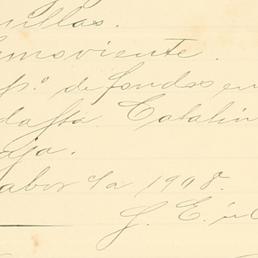 nillas.
emoviente.
p.º de fondos en
Catalin
aja.
abor 1a 1908.